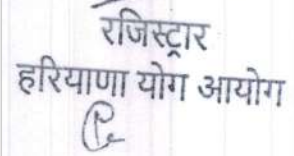 रजिस्ट्रार
हरियाणा योग आयोग